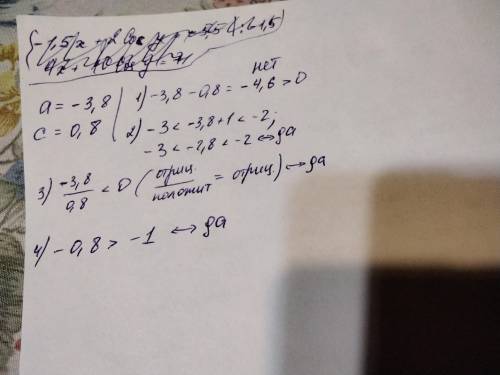 a = -3,8
c = 0,8
1) -3,8 - 0,8 = -4,6 > 0 нет
2) -3 < -3,8+1 < -2;
-3 < -2,8 < -2 ⇔ да
3) -3,8/0,8 < 0 (отриц./положит = отриц.) ⇔ да
4) -0,8 > -1 ⇔ да